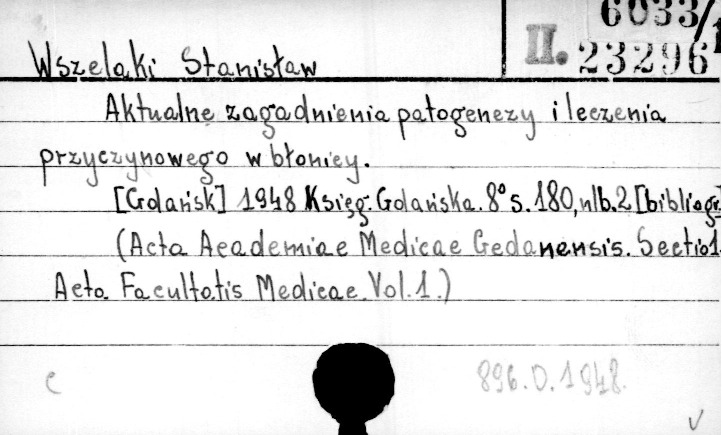 6033/1
II. 23296
Wszelaki Stanisław
Aktualne zagadnienia patogenezy i leczenia
przyczynowego w błonicy.
[Gdańsk] 1948 Księg. Gdańska. 8° s. 180, nlb. 2 [bibliogr.
(Acta Academiae Medicae Gedanensis. Sectio 1.
Acta Facultatis Medicae. Vol. 1.)
c
896.D.1948.